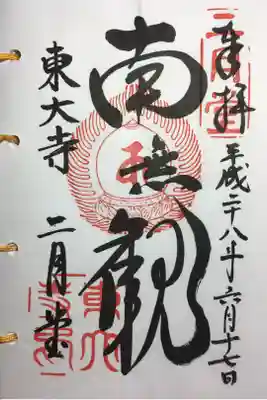 奉拝
平成二十八年六月十七日
南無観
東大寺
二月堂